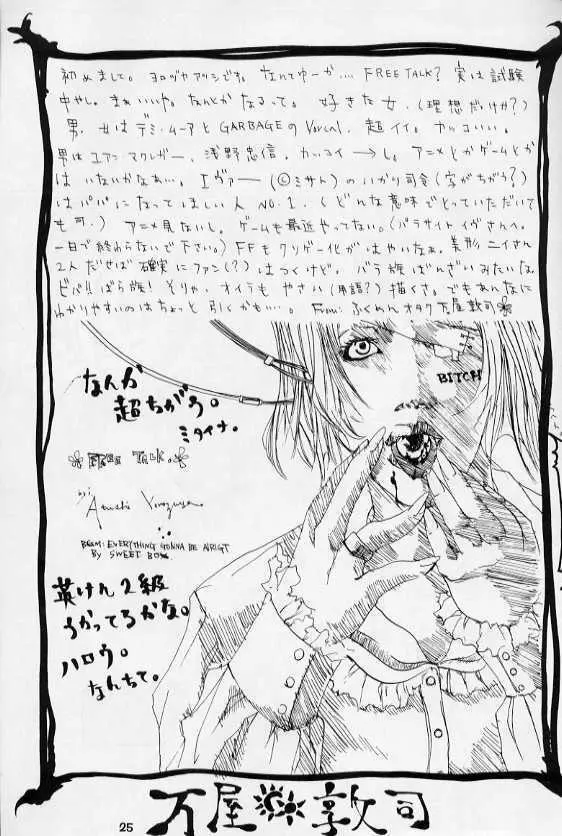 初めまして。ヨロヅヤアツシです。なんてゆーか…. FREE TALK? 実は試験
中やし。まぁいいや。なんとかなるって。好きな女.(理想だけか?)
男. 女はデミ・ムーアとGARBAGEのVocal. 超イイ。カッコいい。
男はユアン マクレガー、浅野忠信。カッコイーし。アニメとかゲームとか
はいないかなぁ…。エヴァー(©ミサト)のいかり司令(字がちがう?)
はパパになってほしい人NO.1.(どんな意味でとっていただいて
も可.) アニメ見ないし。ゲームも最近やってない。(パラサイトイヴさんへ.
一日で終わらないで下さい。) FFもクソゲー化がはやいなぁ。美形ニイさん
2人だせば確実にファン(?)はつくけど。バラ族ばんざいみたいな
ビバ!!ばら族! そりゃ、オイラもやさい(用語?)描くさ。でもあんなに
わかりやすいのはちょっと引くかもい…。From: ふくめんオタク万屋敦司
BITCH
なんか
超ちがう。
ミタイナ。
FREE TALK.
by: Atsushi Yorozuya
BGM: EVERYTHING GONNA BE ALRIGT
BY SWEET BOX
英けん2級
うかってるかな。
ハロウ。
なんちて。
25
万屋 敦司